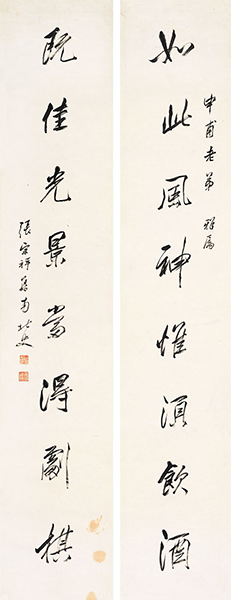 如此風神惟須飲酒
申甫老弟 雅屬
既佳光景當得劇棋
張宗祥集南北史